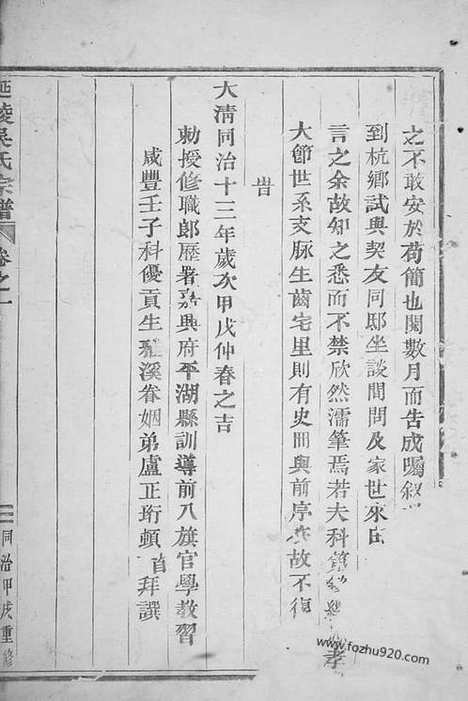 之不敢安於苟簡也閱數月而告成囑叙
到杭鄉試與契友同邸坐談間問及家世來由
言之余故知之悉而不禁欣然濡筆焉若夫科第 孝
大節世系支脉生齒宅里則有史冊與前序在故不復
旹
大清同治十三年歲次甲戌仲春之吉
勅授修職郎歷署嘉興府平湖縣訓導前八旗官學教習
咸豐壬子科優貢生 溪眷姻弟盧正珩頓首拜譔
延陵吳氏宗譜 卷之一 同治甲戌重修
www.fozhu920.com